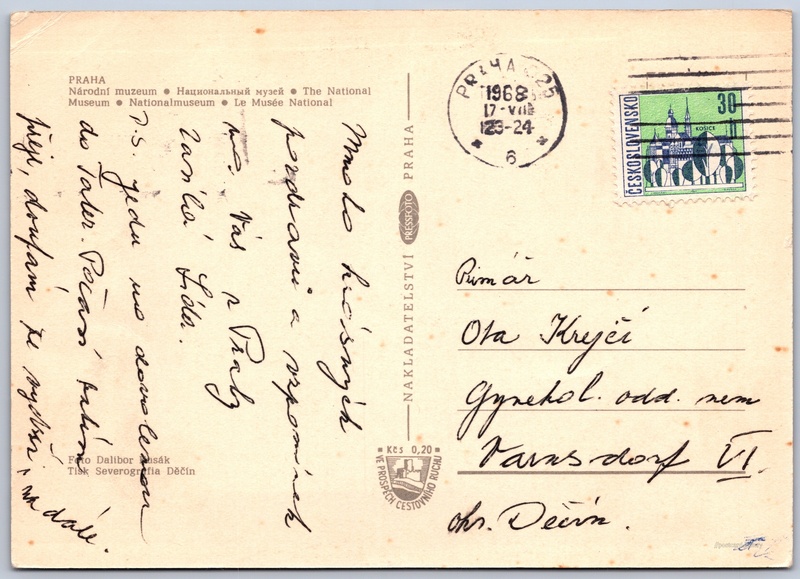 PRAHA
Národní muzeum • Национальный музей • The National
Museum • Nationalmuseum • Le Musée National
Mnoho krásných
pozdravů a vzpomínek
na Vás z Prahy
zasílá Lída.
P.S. Jedu na dovolenou
do Tater. Počasí zatím
přeje, doufám že vydrží i nadále.
Foto Dalibor Kusák
Tisk Severografia Děčín
NAKLADATELSTVÍ PRESSFOTO PRAHA
Kčs 0,20
VE PROSPĚCH CESTOVNÍHO RUCHU
PRAHA 025
1968
17-VIII
23-24
6
ČESKOSLOVENSKO
30 h
KOŠICE
Primář
Ota Krejčí
Gynekol. odd. nem
Varnsdorf VI.
okr. Děčín.